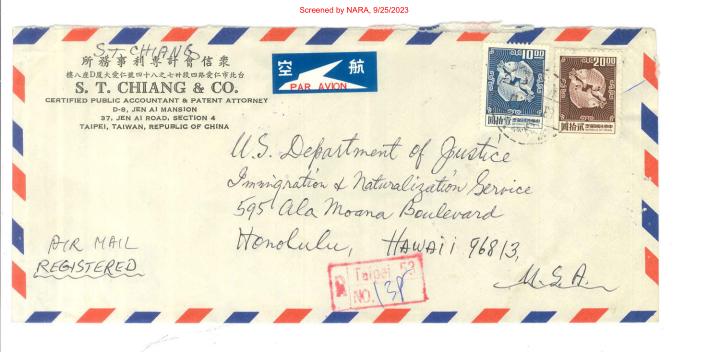 Screened by NARA, 9/25/2023
S.T. CHIANG
所務事利專計會信衆
樓八座D廈大愛仁號四十八之廿段四路愛仁市北台
S. T. CHIANG & CO.
CERTIFIED PUBLIC ACCOUNTANT & PATENT ATTORNEY
D-8, JEN AI MANSION
37, JEN AI ROAD, SECTION 4
TAIPEI, TAIWAN, REPUBLIC OF CHINA
空 航
PAR AVION
10.00
圓拾壹
20.00
圓拾貳
U.S. Department of Justice
Immigration & Naturalization Service
595 Ala Moana Boulevard
Honolulu, HAWAII 96813,
U.S.A.
AIR MAIL
REGISTERED
R Taipei 53
NO.